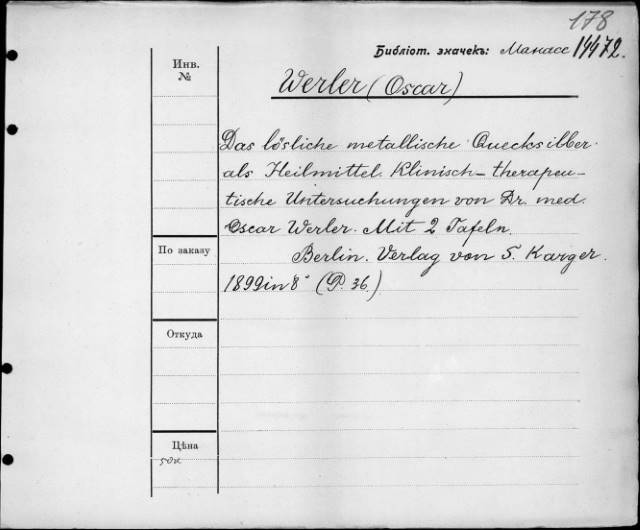 178
Библіот. значекъ: Манасс 14472.
Инв.
№
Werler (Oscar)
Das lösliche metallische Quecksilber
als Heilmittel. Klinisch-therapeu-
tische Untersuchungen von Dr. med.
Oscar Werler. Mit 2 Tafeln.
По заказу
Berlin. Verlag von S. Karger.
1899 in 8° (P. 36.)
Откуда
Цѣна
50к